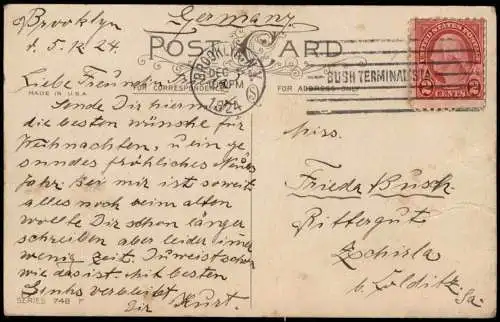 Brooklyn
d. 5.12.24.
Germany
POST CARD
BROOKLYN, N.Y.
DEC
PM
1924
BUSH TERMINAL STA.
UNITED STATES POSTAGE
2 CENTS 2
MADE IN U.S.A.
FOR CORRESPONDENCE
FOR ADDRESS ONLY
Liebe Freundin
Sende Dir hiermit
die besten wünsche für
Weihnachten, u ein ge
sundes fröhliches Neues
Jahr. Bei mir ist soweit
alles noch beim alten
wollte Dir schon länger
schreiben aber leider immer
wenig Zeit. Du weist schon
wie das ist. Mit besten
Gruhs verbleibt
Dir Kurt.
SERIES 748 F
Miss.
Frieda Busch
Rittergut
Zschirla
b. Colditz
Sa.